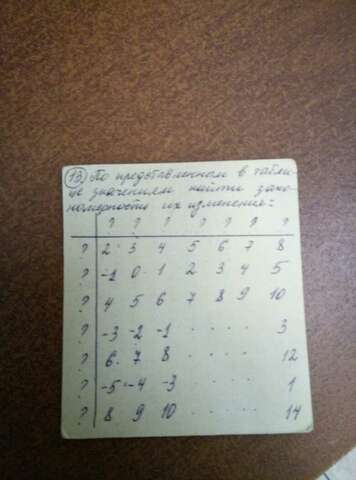 13) По представленном в табли-
це значениям найти зако-
номерность их изменения:
? ? ? ? ? ? ?
? 2 3 4 5 6 7 8
? -1 0 1 2 3 4 5
? 4 5 6 7 8 9 10
? -3 -2 -1 . . . . 3
? 6 7 8 . . . . 12
? -5 -4 -3 . . . . 1
? 8 9 10 . . . . 14